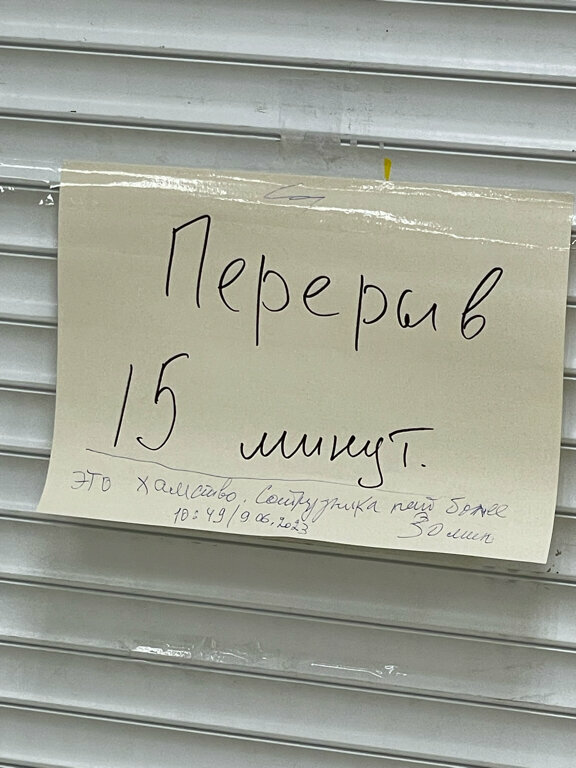 Перерыв
15 минут.
это хамство. Сотрудника нет более
10:49/9.06.2023 30 мин